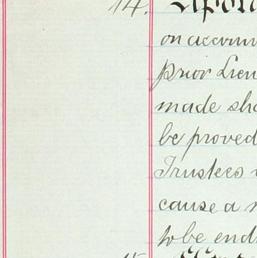 14. Upon
on accoun
prior Lien
made sha
be proved
Trustees
cause a
to be end
15.